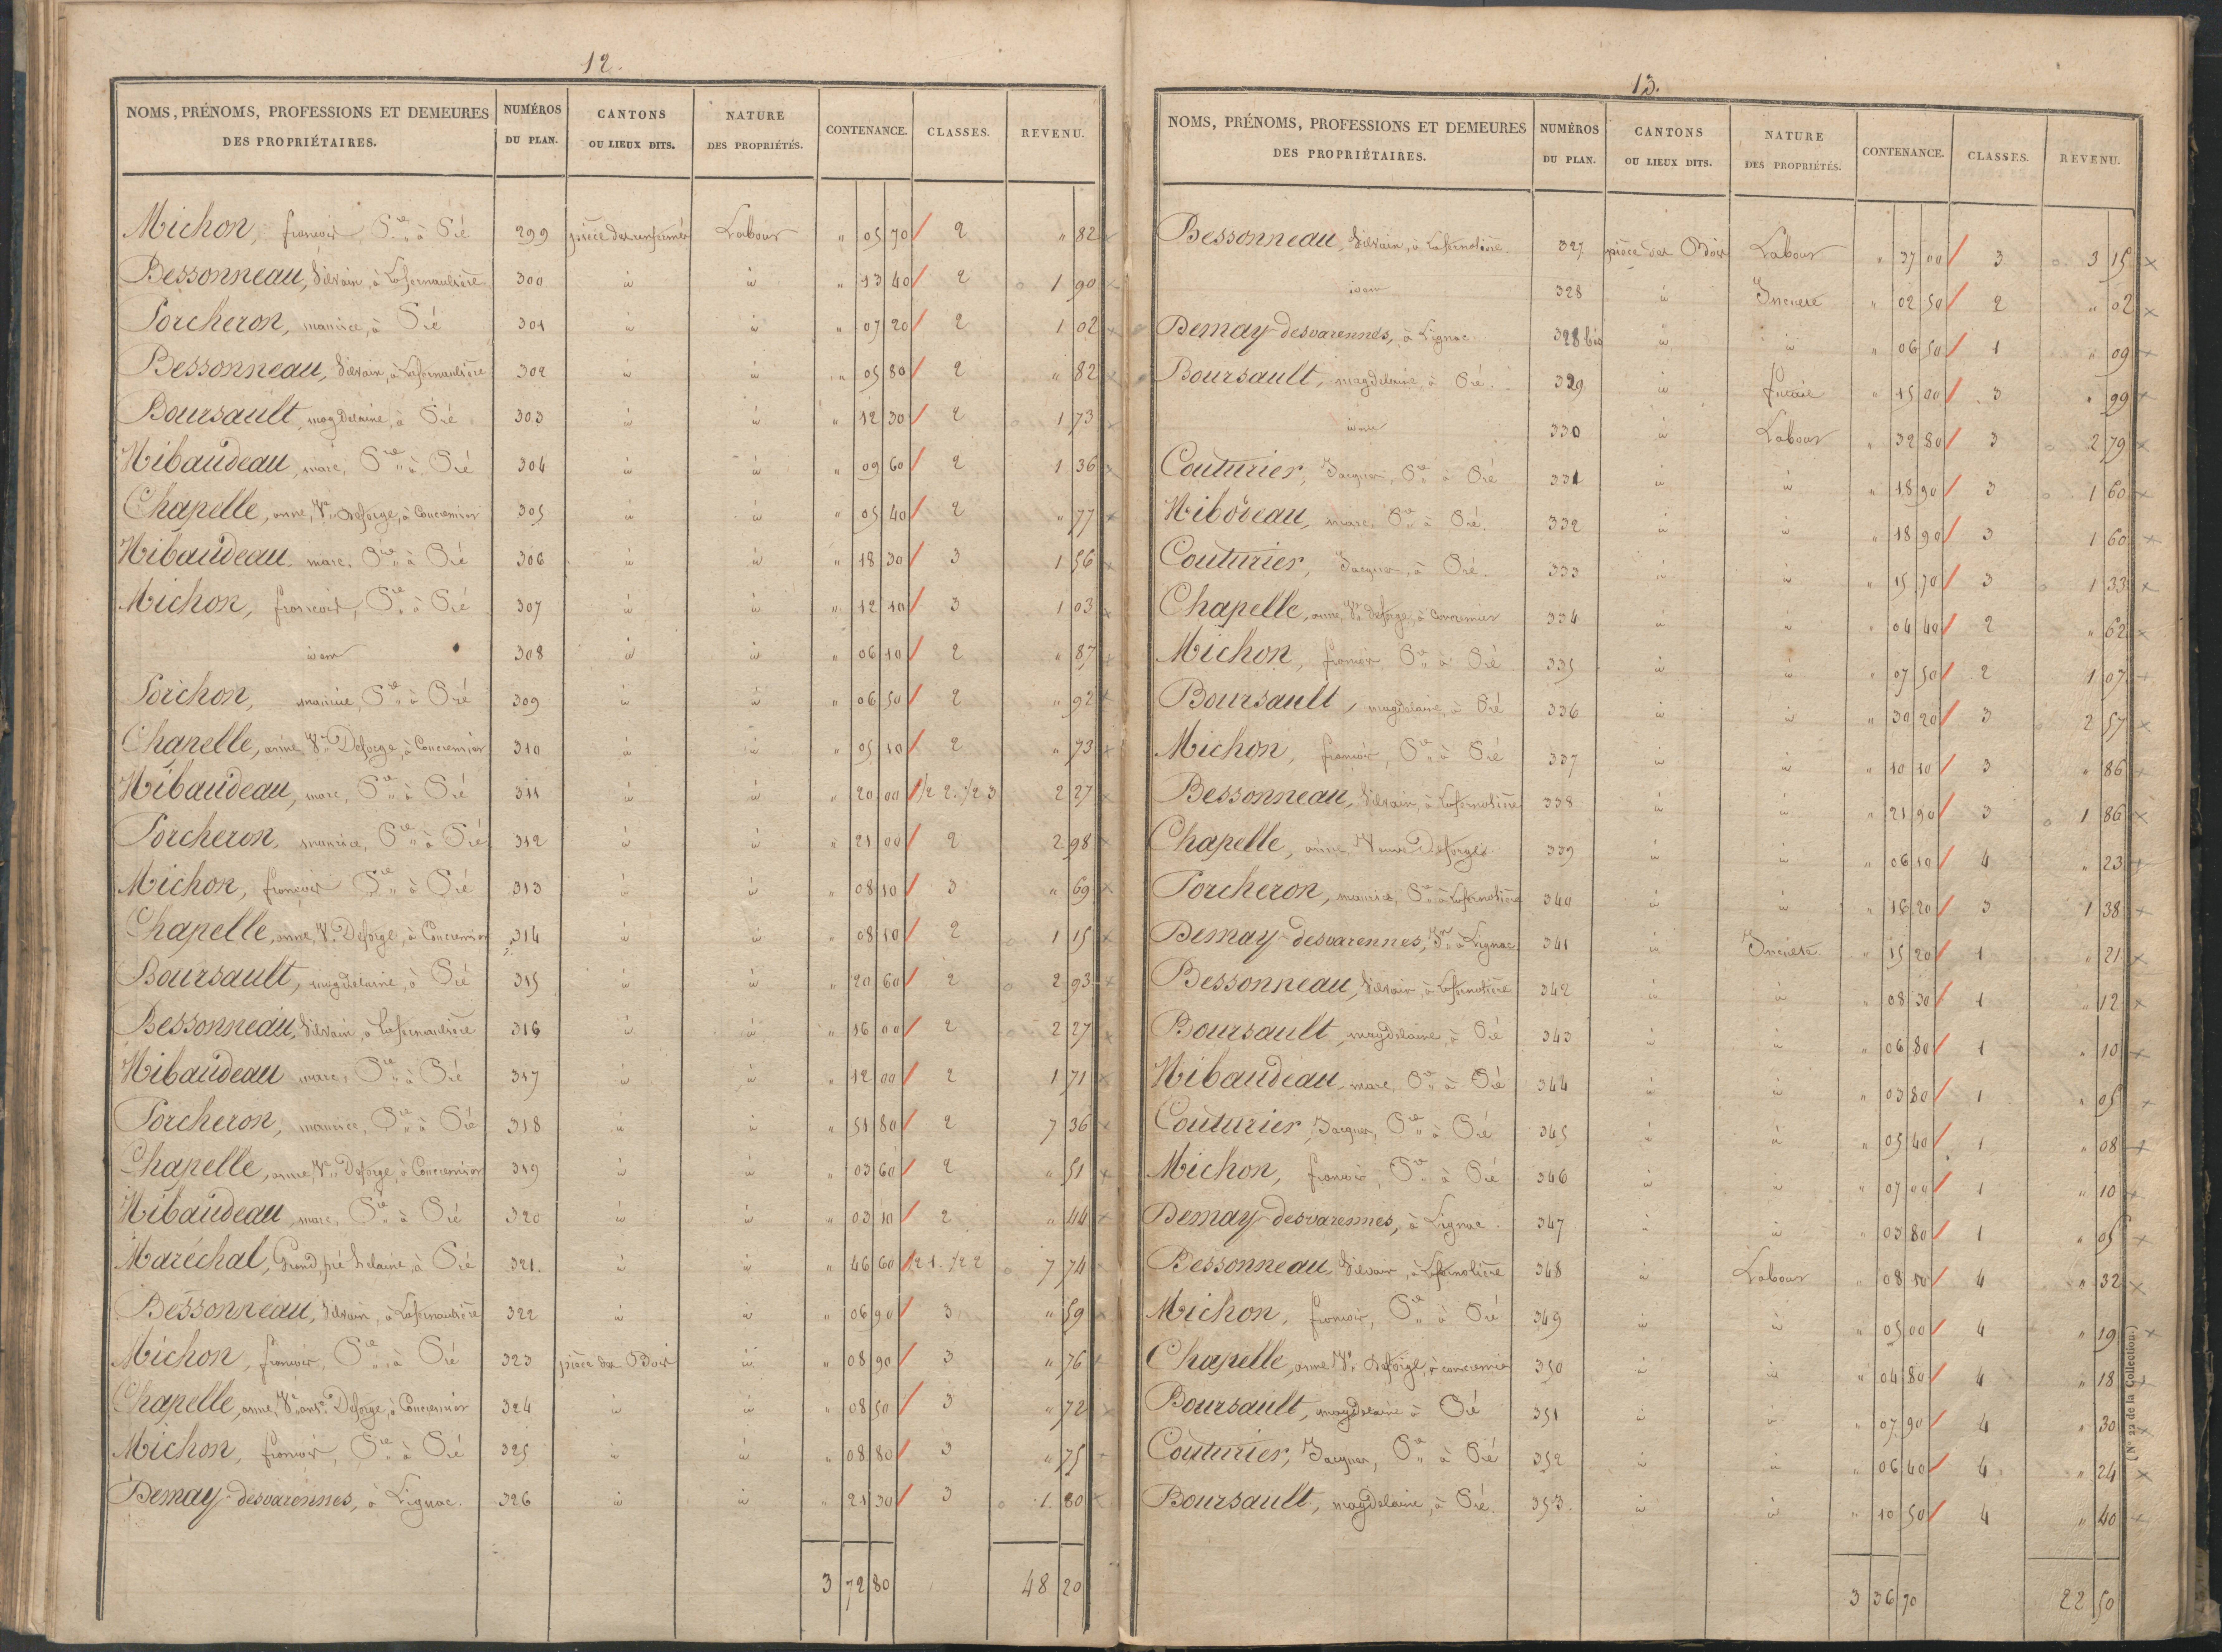 12.
NOMS, PRÉNOMS, PROFESSIONS ET DEMEURES DES PROPRIÉTAIRES. NUMÉROS DU PLAN. CANTONS OU LIEUX DITS. NATURE DES PROPRIÉTÉS. CONTENANCE. CLASSES. REVENU.
Michon, francois, Pre à Pié 299 pièce des Labour " 05 70 2 " 82
Bessonneau, Silvain, à Lafernaulière 300 id id " 13 40 2 1 90
Porcheron, maurice, à Pié 301 id id " 07 20 2 1 02
Bessonneau, Silvain, à Lafernaulière 302 id id " 05 80 2 " 82
Boursault, magdelaine, à Pié 303 id id " 12 30 2 1 73
Hibaudeau, marc, Pre à Pié 304 id id " 09 60 2 1 36
Chapelle, anne, Ve Deforge, à Concremier 305 id id " 05 40 2 " 77
Hibaudeau, marc, Pre à Pié 306 id id " 18 30 3 1 56
Michon, francois, Pre à Pié 307 id id " 12 10 3 1 03
idem 308 id id " 06 10 2 " 87
Porichon, maurice, Pre à Pié 309 id id " 06 50 2 " 92
Chapelle, anne, Ve Deforge, à Concremier 310 id id " 05 10 2 " 73
Hibaudeau, marc, Pre à Pié 311 id id " 20 00 1/2 2. 1/2 3 2 27
Porcheron, maurice, Pre à Pié 312 id id " 21 00 2 2 98
Michon, francois Pre à Pié 313 id id " 08 10 3 " 69
Chapelle, anne, Ve Deforge, à Concremier 314 id id " 08 10 2 1 15
Boursault, magdelaine, à Pié 315 id id " 20 60 2 2 93
Bessonneau, Silvain, à Lafernaulière 316 id id " 16 00 2 2 27
Hibaudeau marc, Pre à Pié 317 id id " 12 00 2 1 71
Porcheron, maurice, Pre à Pié 318 id id " 51 80 2 7 36
Chapelle, anne, Ve Deforge, à Concremier 319 id id " 03 60 2 " 51
Hibaudeau, marc, Pre à Pié 320 id id " 03 10 2 " 44
Maréchal, Grand pré hilaire, à Pié 321. id id " 46 60 1/2 1. 1/2 2 7 74
Bessonneau, Silvain, à Lafernaulière 322 id id " 06 90 3 " 59
Michon, francois, Pre à Pié 323 pièce des Bois id " 08 90 3 " 76
Chapelle, anne, Ve Deforge, à Concremier 324 id id " 08 50 3 " 72
Michon, francois, Pre à Pié 325 id id " 08 80 3 " 75
Demay-desvarennes, à Lignac. 326 id id " 21 30 3 1 80
3 72 80 48 20
13.
NOMS, PRÉNOMS, PROFESSIONS ET DEMEURES DES PROPRIÉTAIRES. NUMÉROS DU PLAN. CANTONS OU LIEUX DITS. NATURE DES PROPRIÉTÉS. CONTENANCE. CLASSES. REVENU.
Bessonneau, Silvain, à Lafernolière 327 pièce des Bois Labour " 37 00 3 3 15
idem 328 id Inculte " 02 50 2 " 02
Demay-desvarennes, à Lignac. 328 bis id id " 06 50 1 " 09
Boursault, magdelaine, à Pié. 329 id " 15 00 3 " 99
idem 330 id Labour " 32 80 3 2 79
Couturier, Jacques, Pre à Pié 331 id id " 18 90 3 1 60
Hibodeau, marc, Pre à Pié. 332 id id " 18 90 3 1 60
Couturier, Jacques, à Pié. 333 id id " 15 70 3 1 33
Chapelle, anne, Ve Deforge, à Concremier 334 id id " 04 40 2 " 62
Michon, francois, Pre à Pié 335 id id " 07 50 2 1 07
Boursault, magdelaine, à Pié 336 id id " 30 20 3 2 57
Michon, francois, Pre à Pié 337 id id " 10 10 3 " 86
Bessonneau, Silvain, à Lafernolière 338 id id " 21 90 3 1 86
Chapelle, anne, Veuve Deforges 339 id id " 06 10 4 " 23
Porcheron, maurice, Pre à Lafernolière 340 id id " 16 20 3 1 38
Demay-desvarennes, à Lignac 341 id Inculte " 15 20 1 " 21
Bessonneau, Silvain, à Lafernolière 342 id id " 08 30 1 " 12
Boursault, magdelaine, à Pié 343 id id " 06 80 1 " 10
Hibaudeau, marc, Pre à Pié 344 id id " 03 80 1 " 05
Couturier, Jacques, Pre à Pié 345 id id " 05 40 1 " 08
Michon, francois, Pre à Pié 346 id id " 07 00 1 " 10
Demay-desvarennes, à Lignac. 347 id id " 03 80 1 " 05
Bessonneau, Silvain, à Lafernolière 348 id Labour " 08 50 4 " 32
Michon, francois, Pre à Pié 349 id id " 05 00 4 " 19
Chapelle, anne, Ve Deforge, à concremier 350 id id " 04 80 4 " 18
Boursault, magdelaine à Pié 351 id id " 07 90 4 " 30
Couturier, Jacques, Pre à Pié 352 id id " 06 40 4 " 24
Boursault, magdelaine, à Pié. 353. id id " 10 50 4 " 40
3 36 70 22 50
(N° 22 de la Collection.)